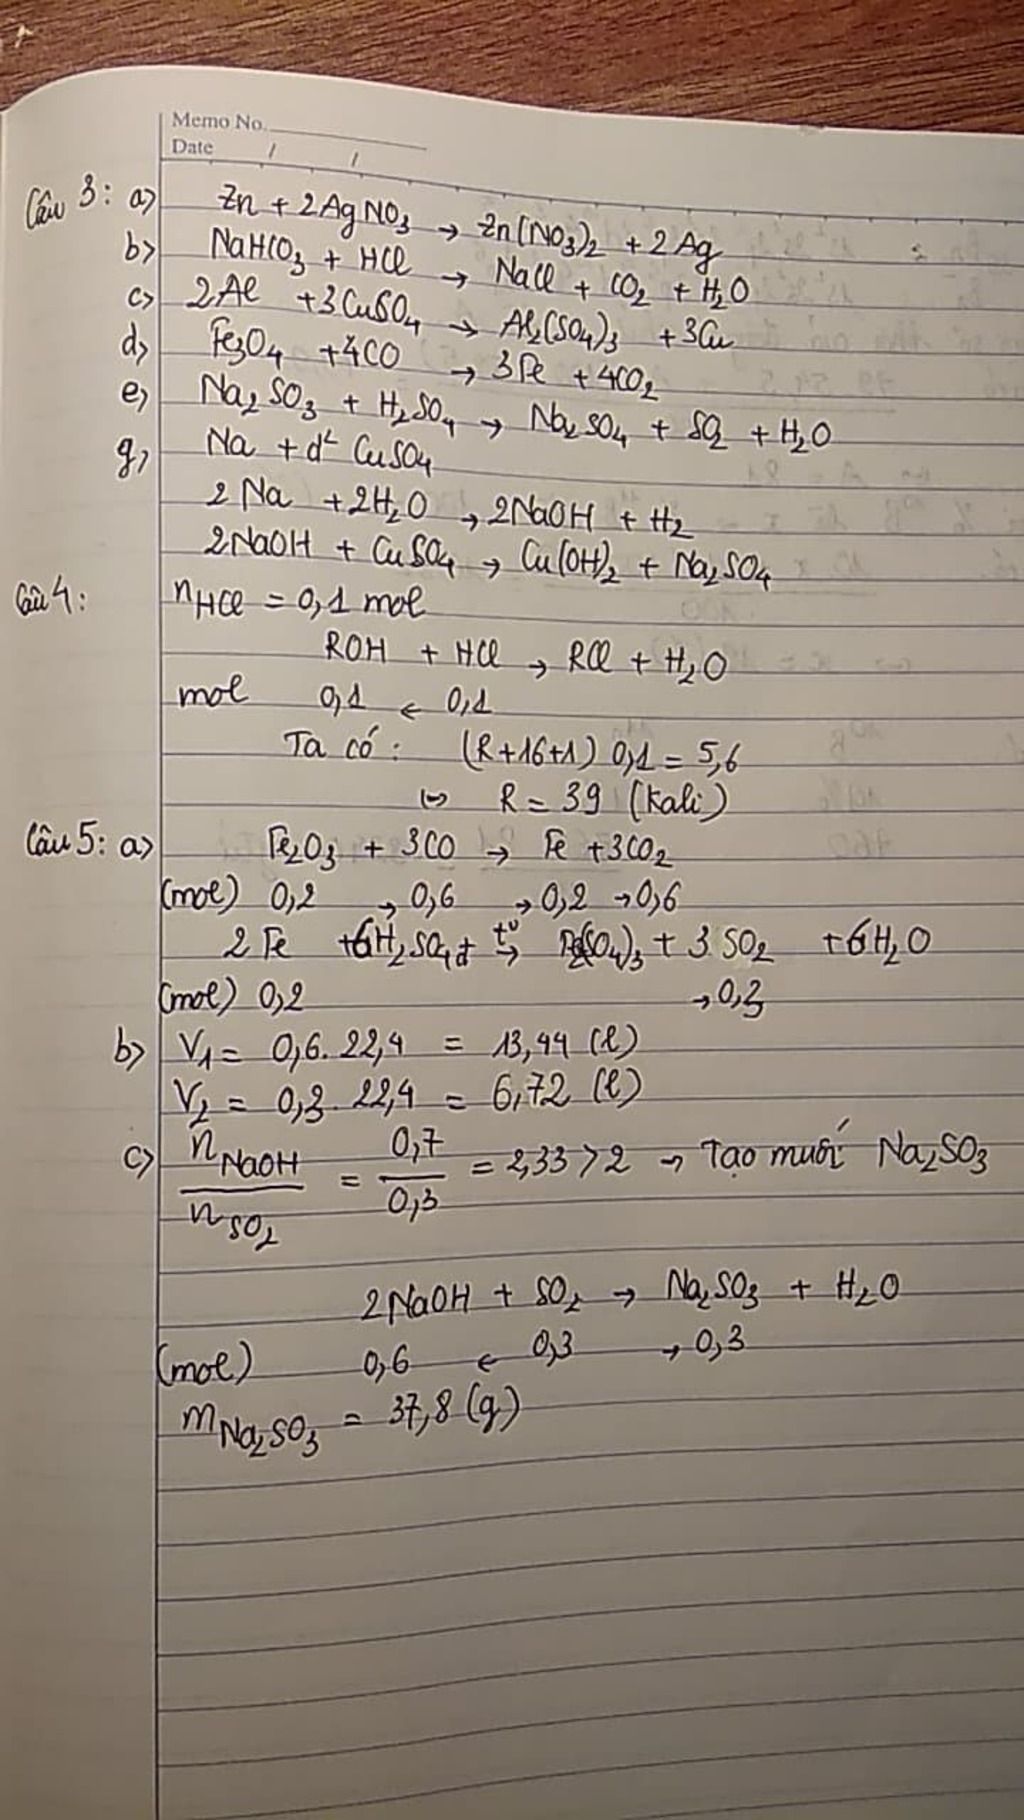 Memo No.
Date / /
Câu 3: a) Zn + 2AgNO3 → Zn(NO3)2 + 2Ag
b) NaHCO3 + HCl → NaCl + CO2 + H2O
c) 2Al + 3CuSO4 → Al2(SO4)3 + 3Cu
d) Fe3O4 + 4CO → 3Fe + 4CO2
e) Na2SO3 + H2SO4 → Na2SO4 + SO2 + H2O
g) Na + d² CuSO4
2Na + 2H2O → 2NaOH + H2
2NaOH + CuSO4 → Cu(OH)2 + Na2SO4
Câu 4: nHCl = 0,1 mol
ROH + HCl → RCl + H2O
mol 0,1 ← 0,1
Ta có: (R+16+1) 0,1 = 5,6
↔ R = 39 (Kali)
Câu 5: a) Fe2O3 + 3CO → Fe + 3CO2
(mol) 0,2 → 0,6 → 0,2 → 0,6
2Fe + 6H2SO4đ t° → Fe2(SO4)3 + 3SO2 + 6H2O
(mol) 0,2 → 0,3
b) V1 = 0,6. 22,4 = 13,44 (l)
V2 = 0,3. 22,4 = 6,72 (l)
c) nNaOH / nSO2 = 0,7 / 0,3 = 2,33 > 2 → Tạo muối Na2SO3
2NaOH + SO2 → Na2SO3 + H2O
(mol) 0,6 ← 0,3 → 0,3
mNa2SO3 = 37,8 (g)